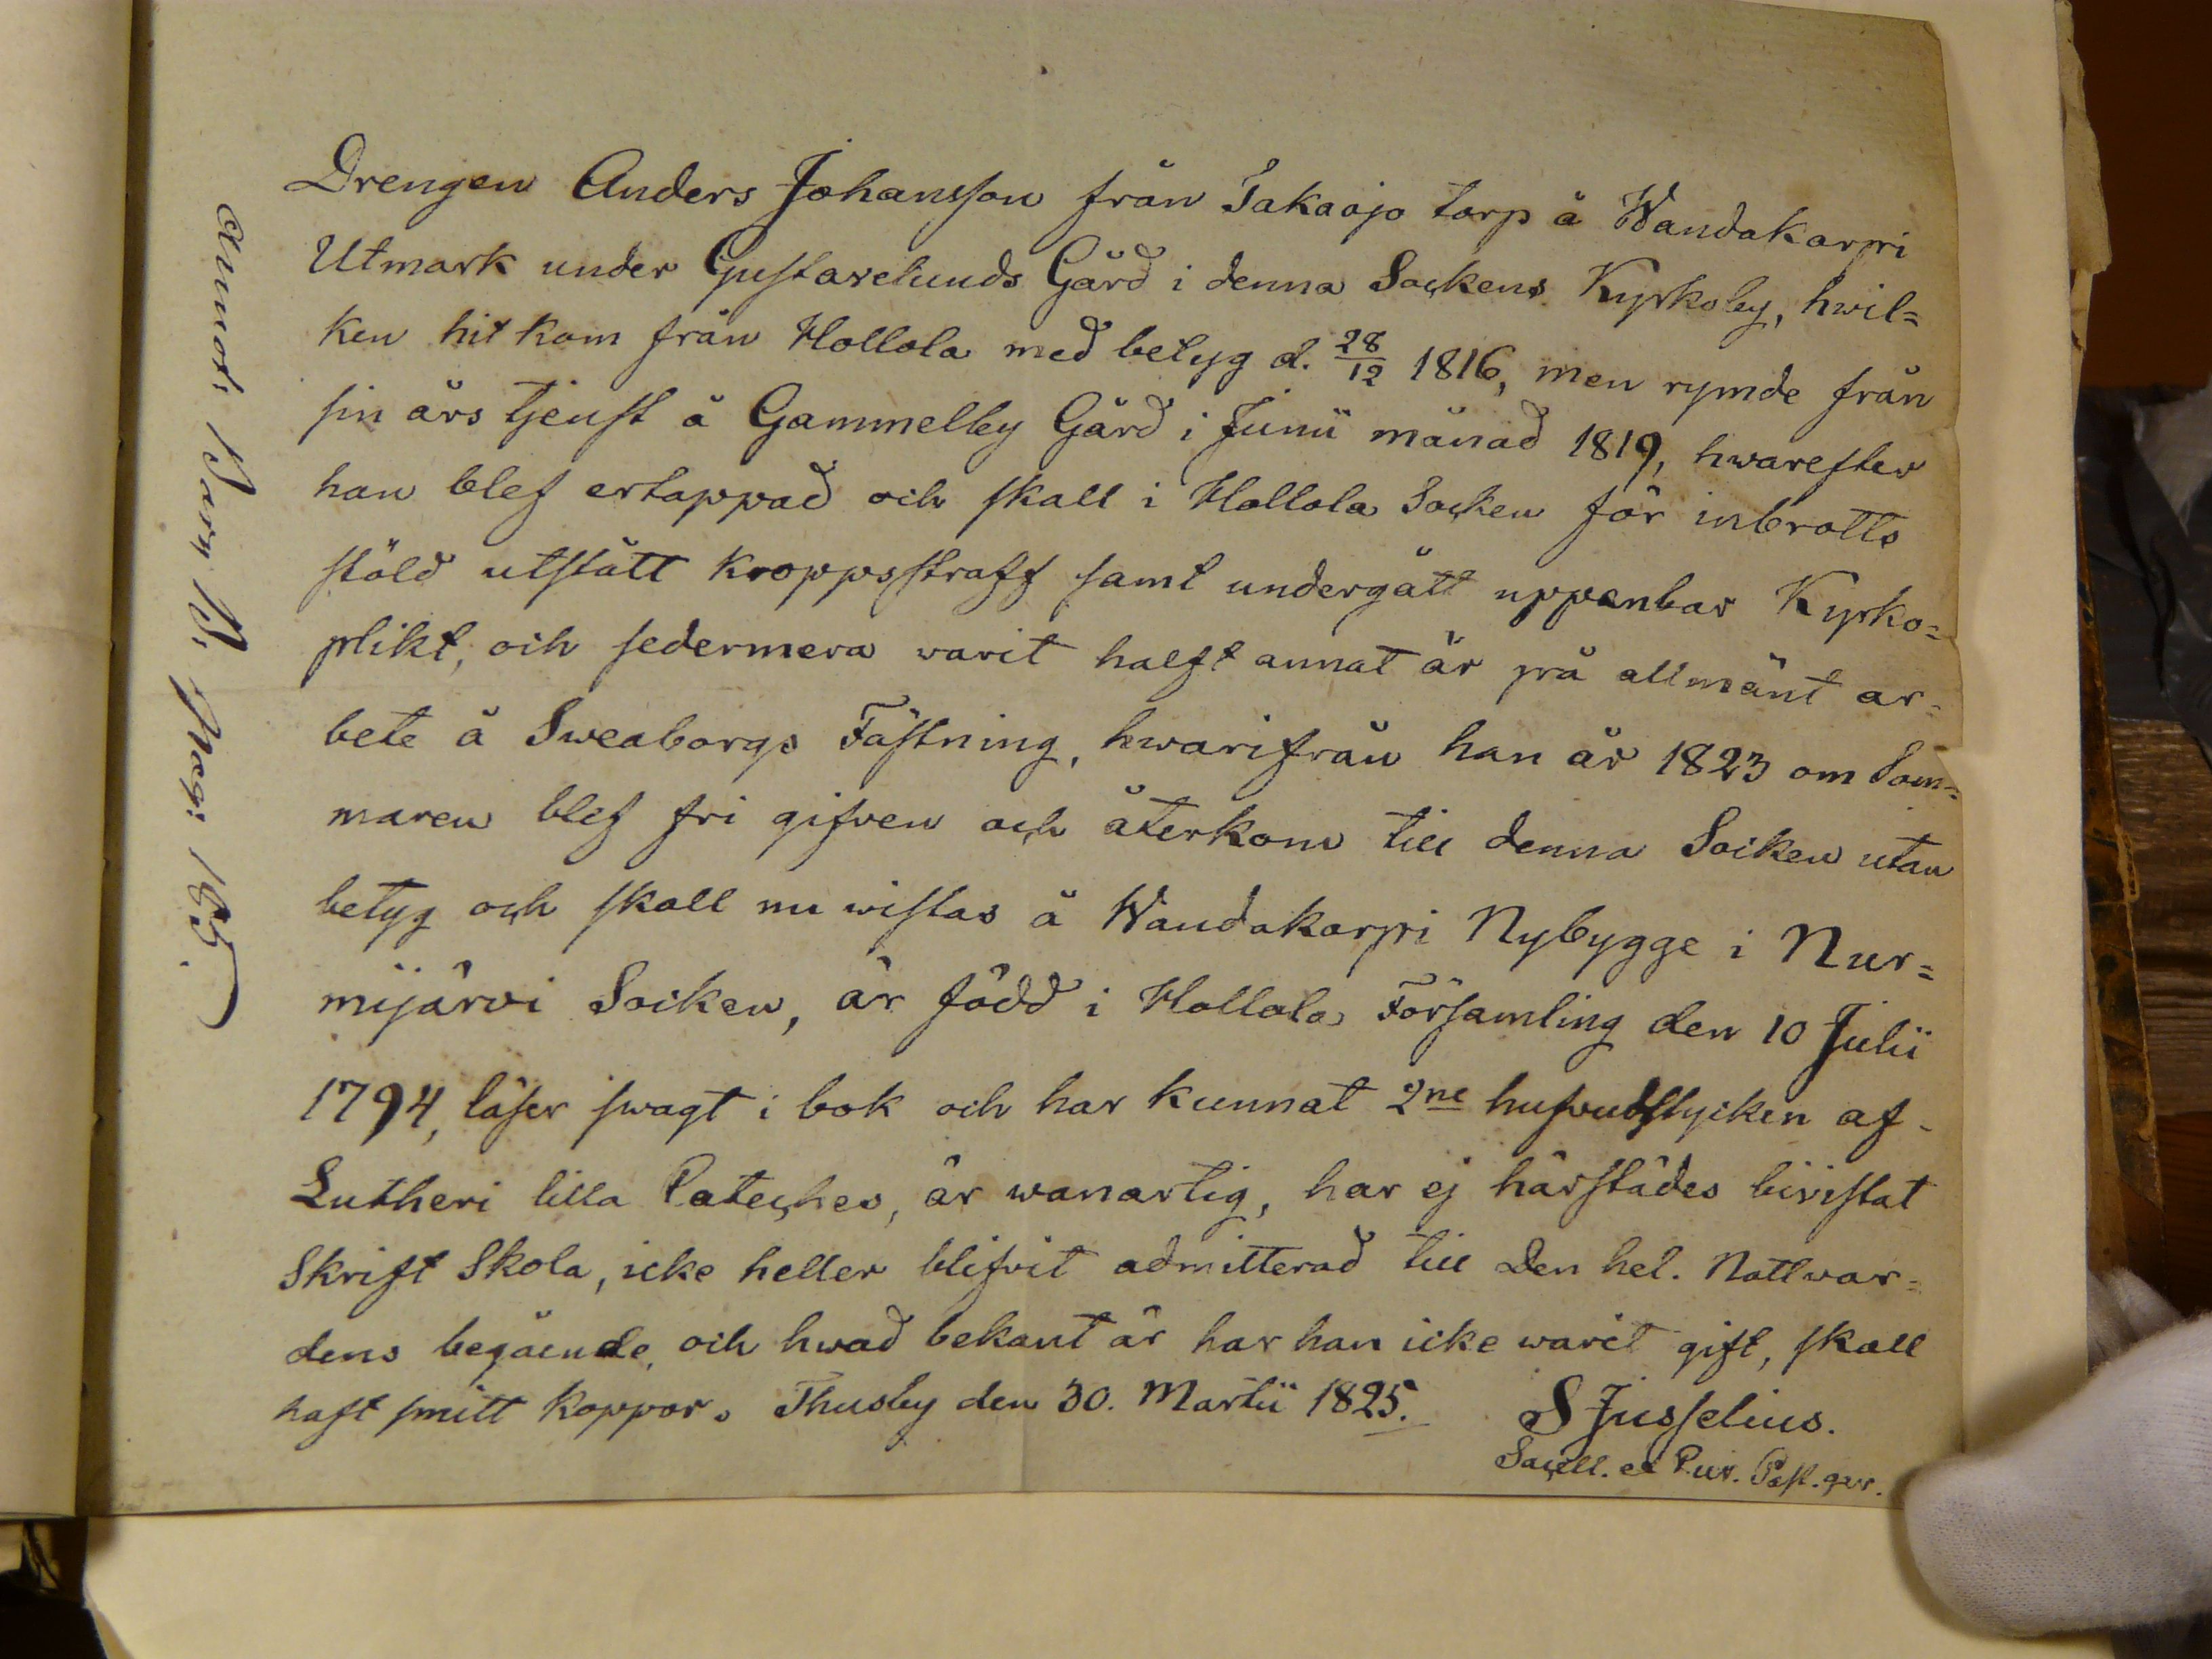 Drengen Anders Johansson från Takaojo torp å Wandakarpi
Utmark under Gustavelunds Gård i denna Sockens Kyrkoby, hwil=
ken hit kom från Hollola med betyg d. 28/12 1816, men rymde från
sin års tjenst å Gammelby Gård i Junii månad 1819, hwarefter
han blef ertappad och skall i Hollola Socken för inbrotts
stöld utstått kroppsstraff samt undergått uppenbar Kyrko=
plikt, och sedermera varit halft annat år på allmänt ar=
bete å Sweaborgs Fästning, hwarifrån han år 1823 om Som=
maren blef fri gifven och återkom till denna Socken utan
betyg och skall nu wistas å Wandakarpi Nybygge i Nur=
mijärvi Socken, är född i Hollola Församling den 10 Julii
1794, läser swagt i bok och har kunnat 2ne hufvudstycken af
Lutheri lilla Cateches, är wanartig, har ej härstädes bivistat
Skrift Skola, icke heller blifvit admitterad till Den hel. Nattwar=
dens begående, och hwad bekant är har han icke warit gift, skall
haft smitt koppor. Thusby den 30. Martii 1825.
S Jusselius.
Sacell. et Past.
Annot.